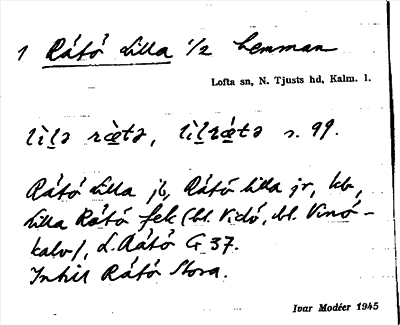 1 Råtö Lilla 1/2 hemman
Lofta sn, N. Tjusts hd, Kalm. l.
s. 99.
Råtö Lilla jb, Råtö Lilla jr, kb,
Lilla Råtö fek (bl. Vidö, bl. Vinö-
kalv), L. Råtö G 37.
Intill Råtö Stora.
Ivar Modéer 1945